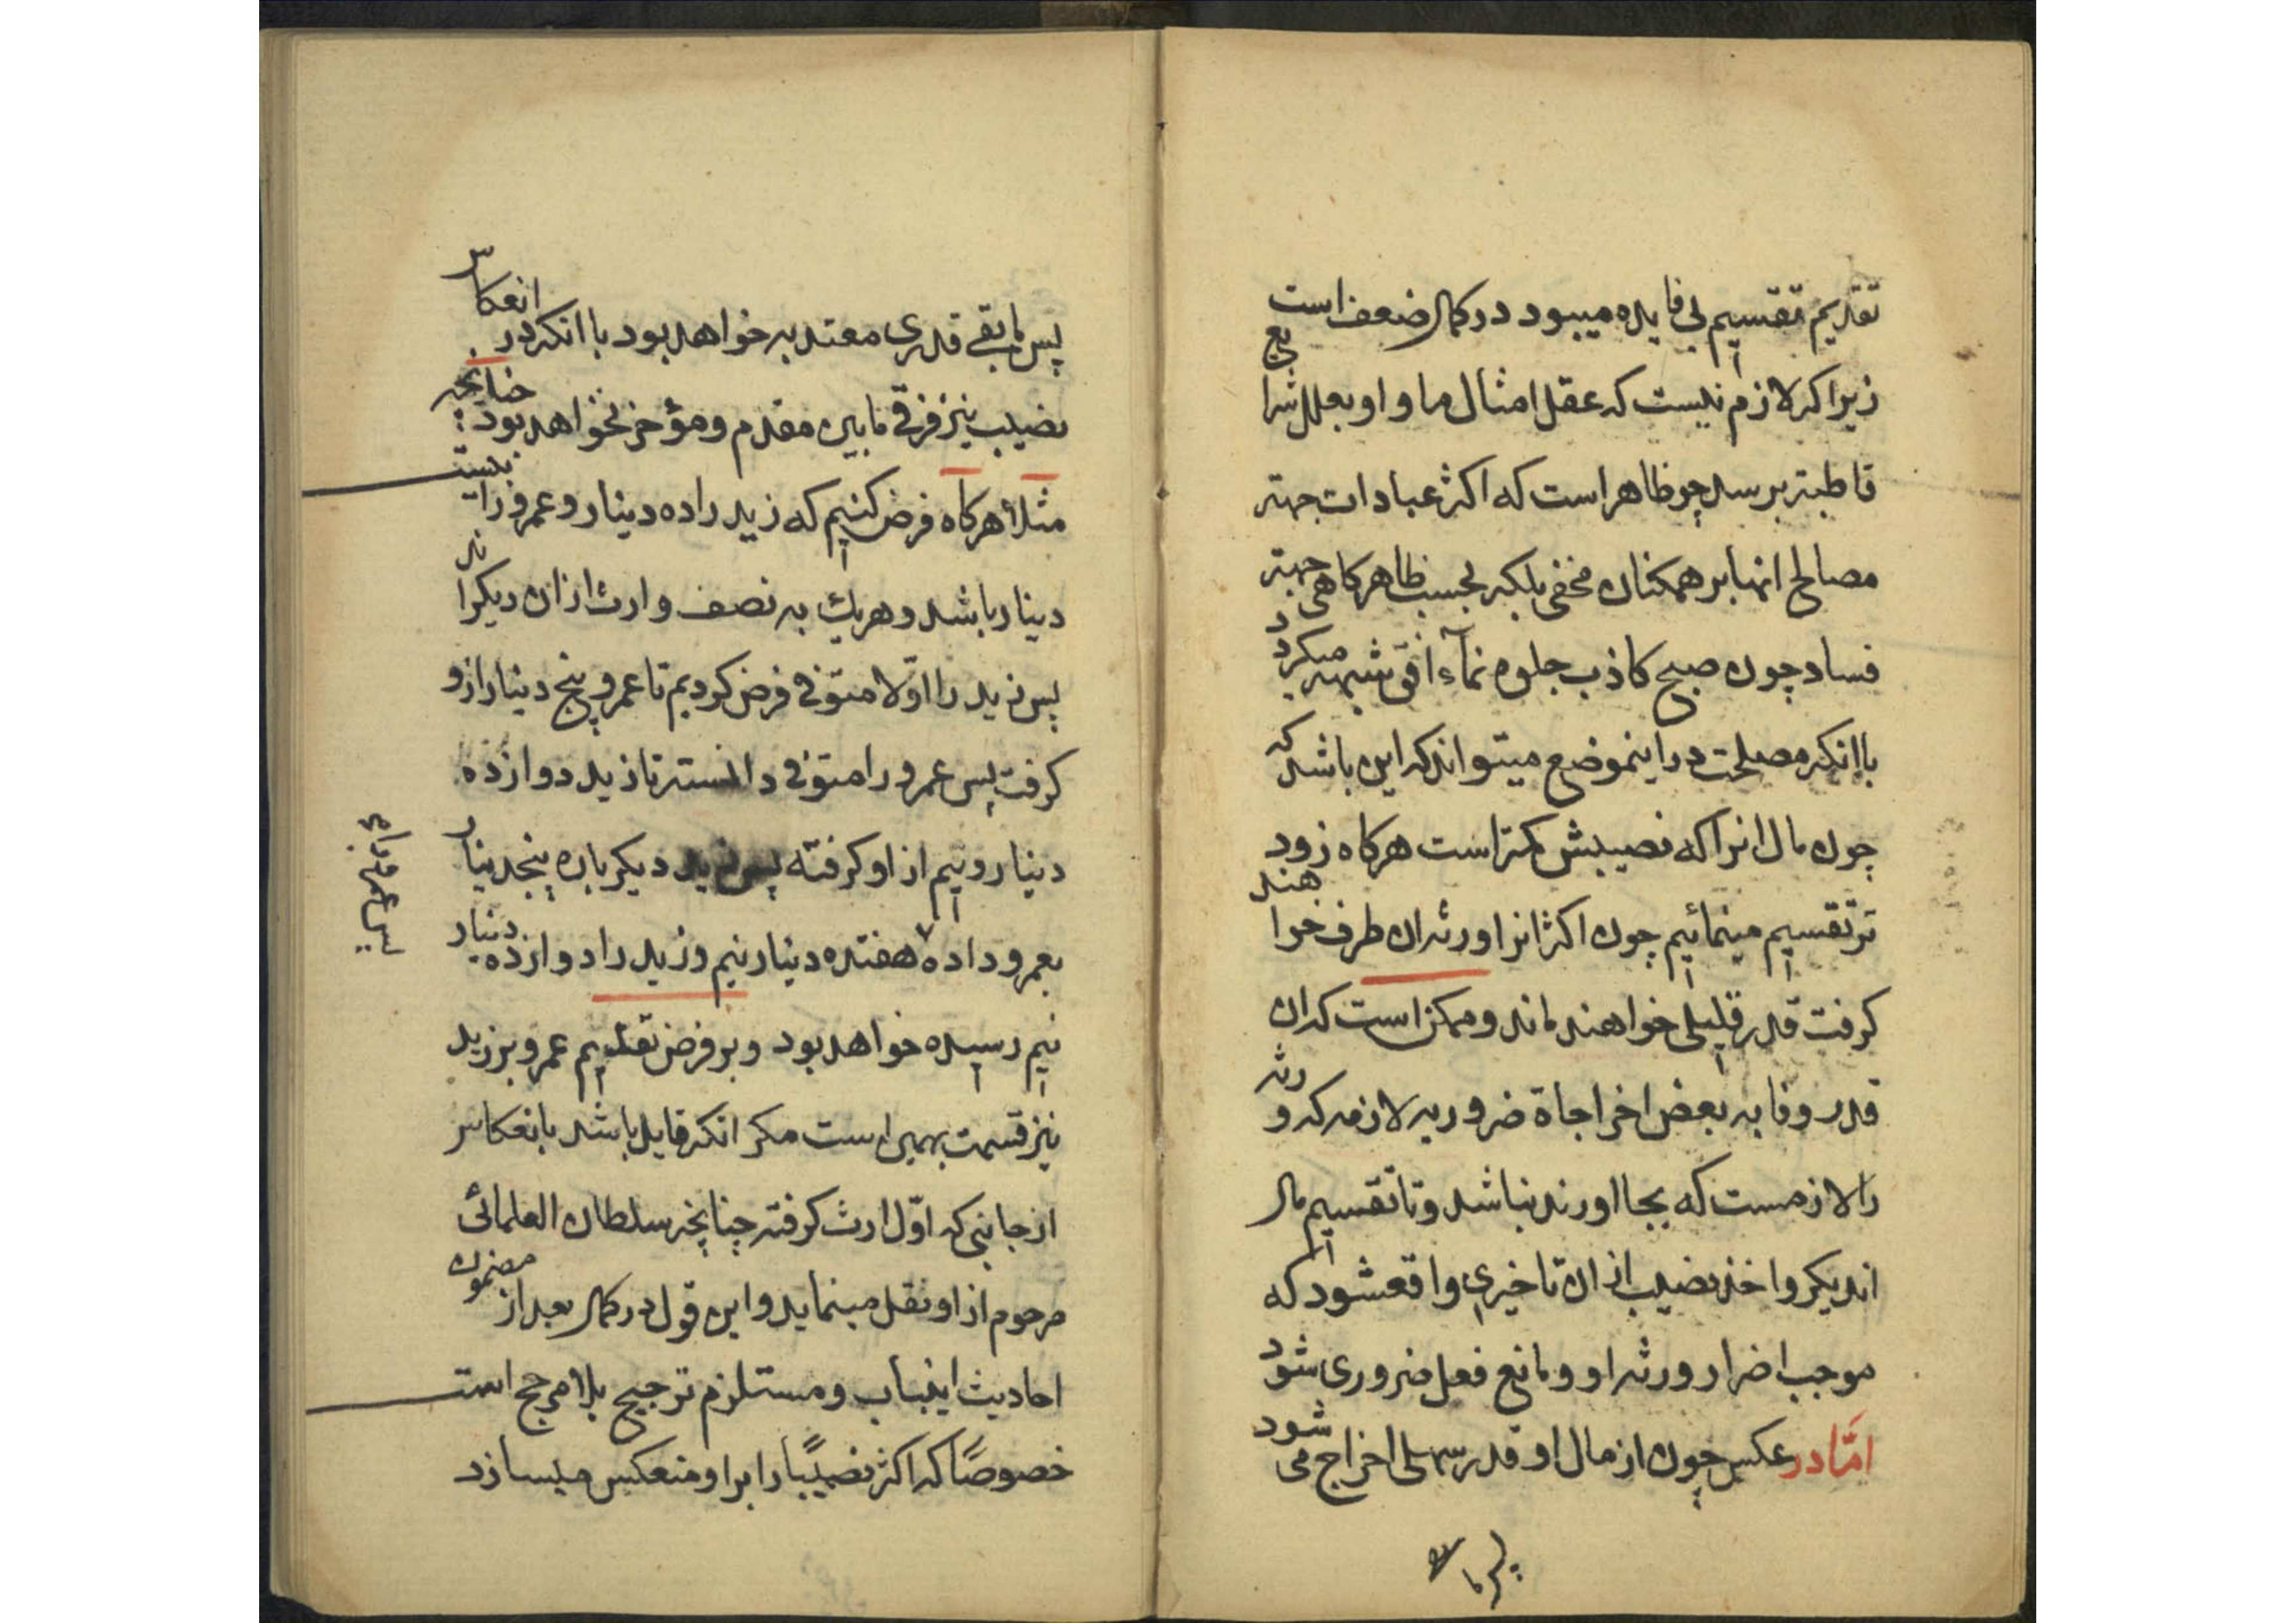 تقدیم تقسیم بی فایده میبود در کمال ضعف است
زیرا که لازم نیست که عقل امثال ما و او بعلل شرایع
قاطبة برسد چو ظاهر است که اکثر عبادات جهة
مصالح انها بر همکنان مخفی بلکه بحسب ظاهر کاهی جهة
فساد چون صبح کاذب جلوه نمآء افق شبهه میکردد
باانکه مصلحت در اینموضع میتواند که این باشد که
چون مال انرا که نصیبش کمتر است هرکاه زود
تر تقسیم مینمائیم چون اکثر انرا ورثه ان طرف خواهند
کرفت قدر قلیلی خواهند ماند و ممکن است که ان
قدر وفا به بعض اخراجاة ضروریه لازمه که ورثه
را لازمست که بجا اورند نباشد و تا تقسیم مال
اندیکر و اخذ نصیب از ان تاخیری واقعشود که
موجب اضرار ورثه او و مانع فعل ضروری شود
امّا در عکس چون از مال او قدر سهلی اخراج می شود
پس ما
پس مابقی قدری معتد به خواهد بود با انکه در انعکاس
نصیب نیز فرقی مابین مقدم و مؤخر نخواهد بود چنانچه
مثلاً هرکاه فرض کنیم که زید را ده دینار و عمرو را بیست
دینار باشد و هریك به نصف وارث از ان دیکراند
پس زید را اوّلا متوفی فرض کردیم تا عمرو پنج دینار ازو
کرفت پس عمرو را متوفی دانسته تا زید دوازده
دینار و نیم از او کرفته پس زید دیکر باره پنجدینار
بعمرو داده هفتده دینار نیم و زید را دوازده دینار
نیم رسیده خواهد بود و بر فرض تقدیم عمرو بر زید
نیز قسمت بهمین است مکر انکه قایل باشد بانعکاس
از جانبی که اوّل ارث کرفته چنانچه سلطان العلمائی
مرحوم از او نقل مینماید و این قول در کمال بعد از مضمون
احادیث اینباب و مستلزم ترجیح بلا مرجح است
خصوصًا که اکثر نصیبًا را بر او منعکس میسازد